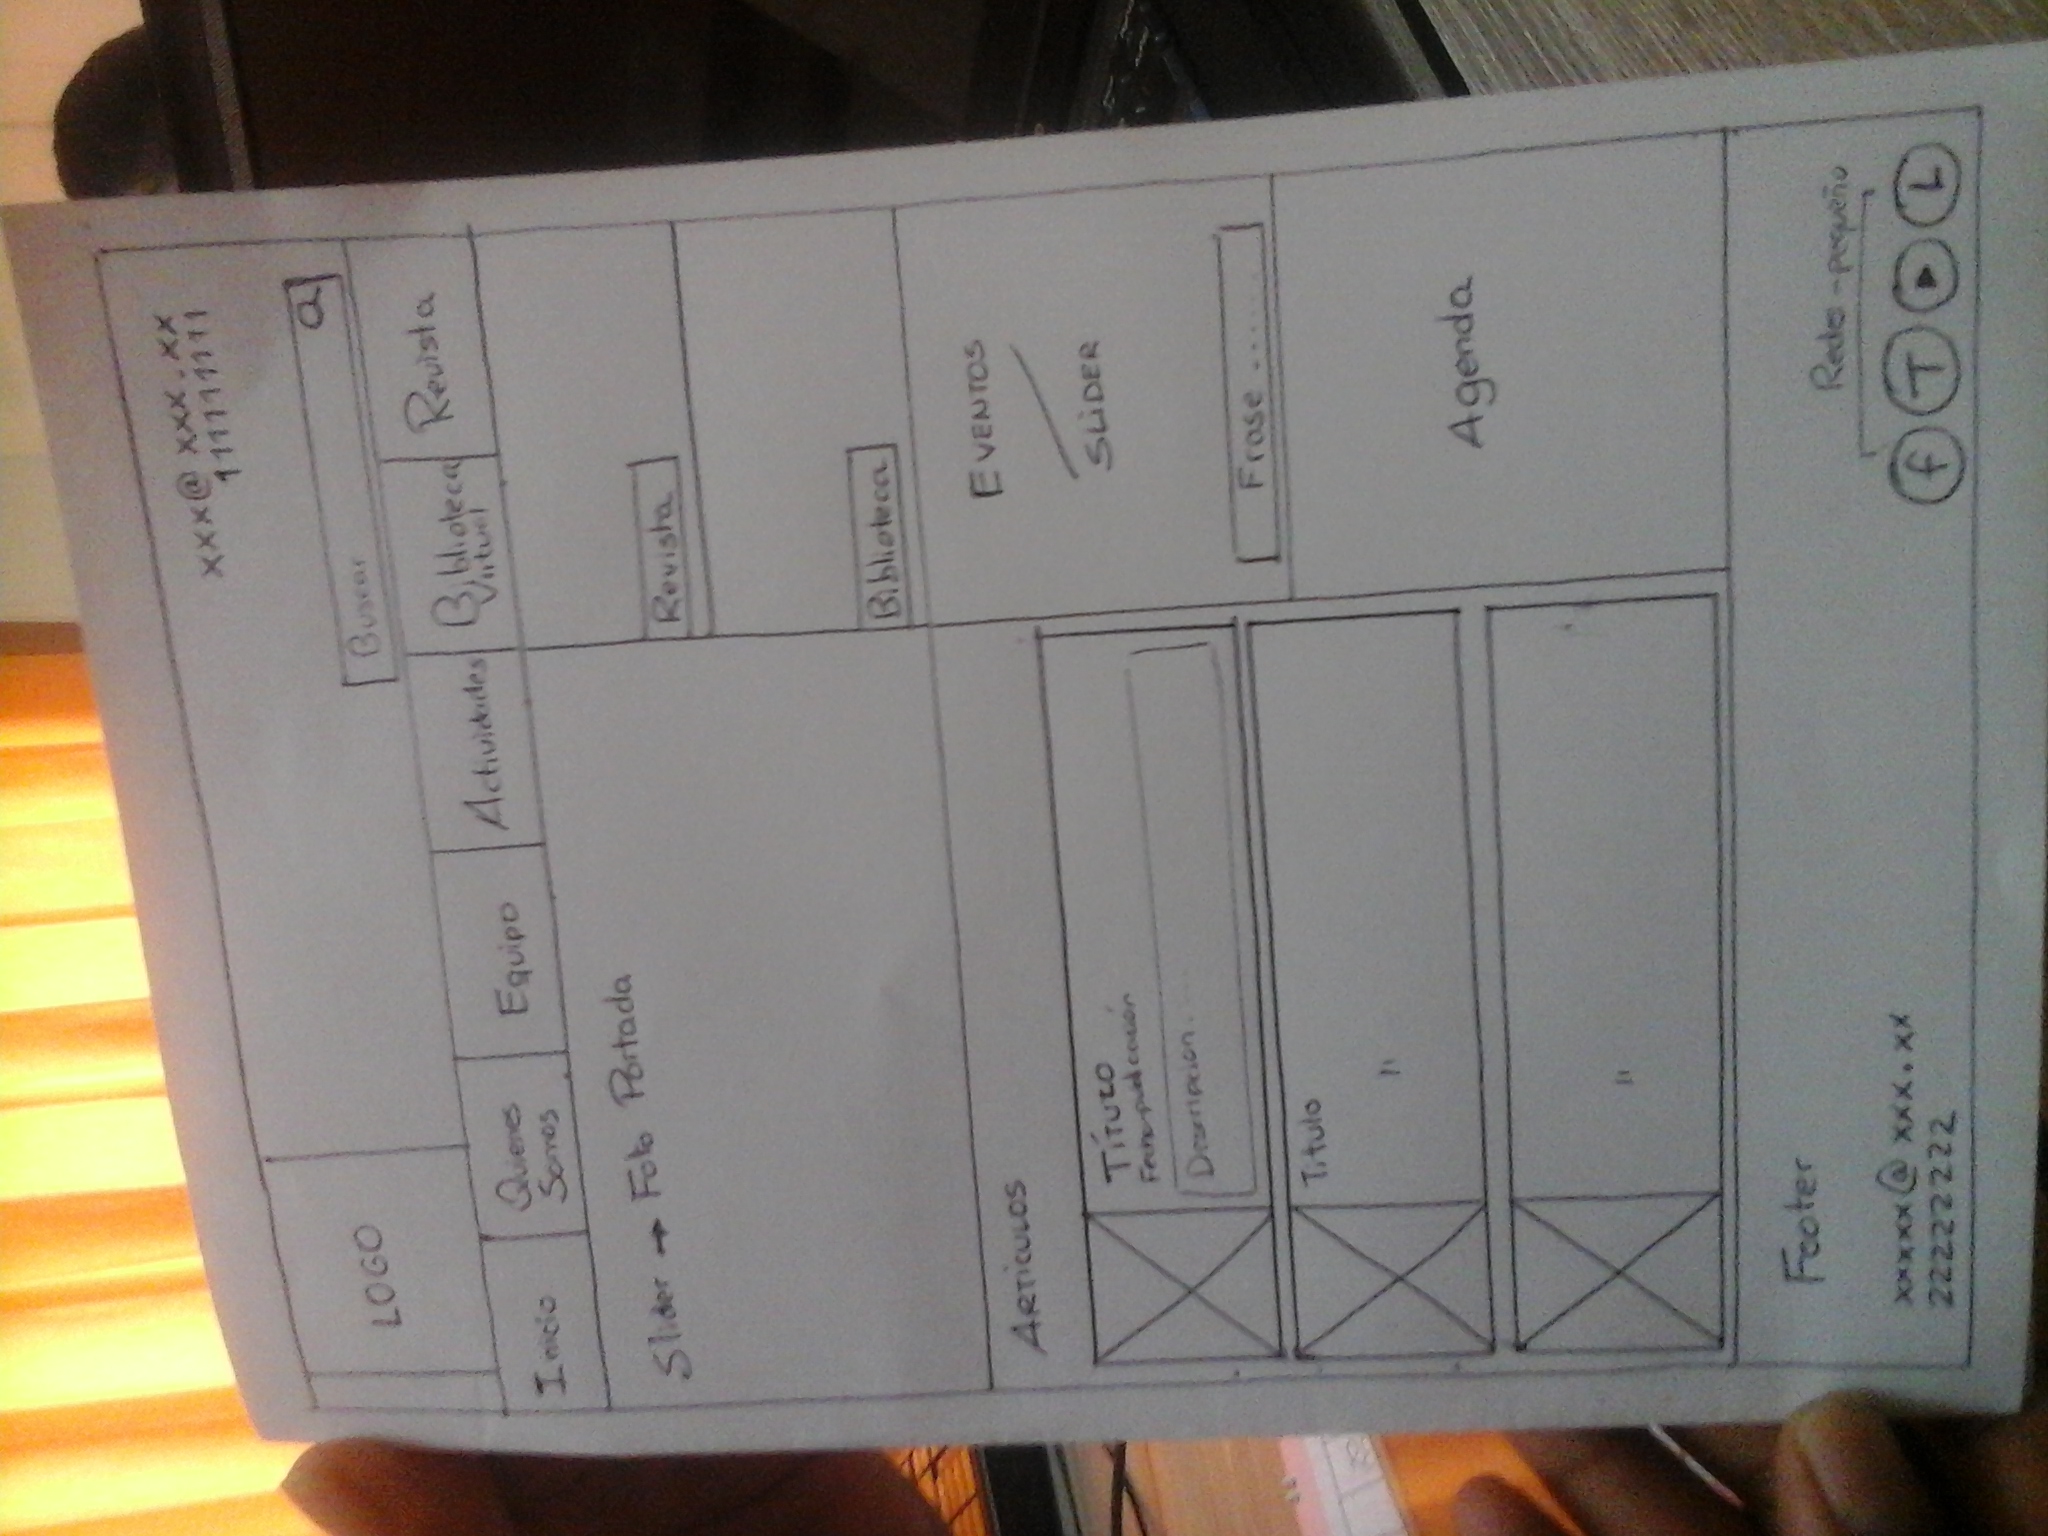 xxx@xxx.xx
111111111
LOGO
Buscar
Inicio
Quienes
Somos
Equipo
Actividades
Biblioteca
Virtual
Revista
Slider → Foto Portada
Revista
Biblioteca
ARTICULOS
TÍTULO
Fecha-publicación
Descripcion.....
Titulo
"
"
EVENTOS
/
SLIDER
Frase ......
Agenda
Footer
xxxxx@xxx.xx
22222222
Redes-pequeño
f T L